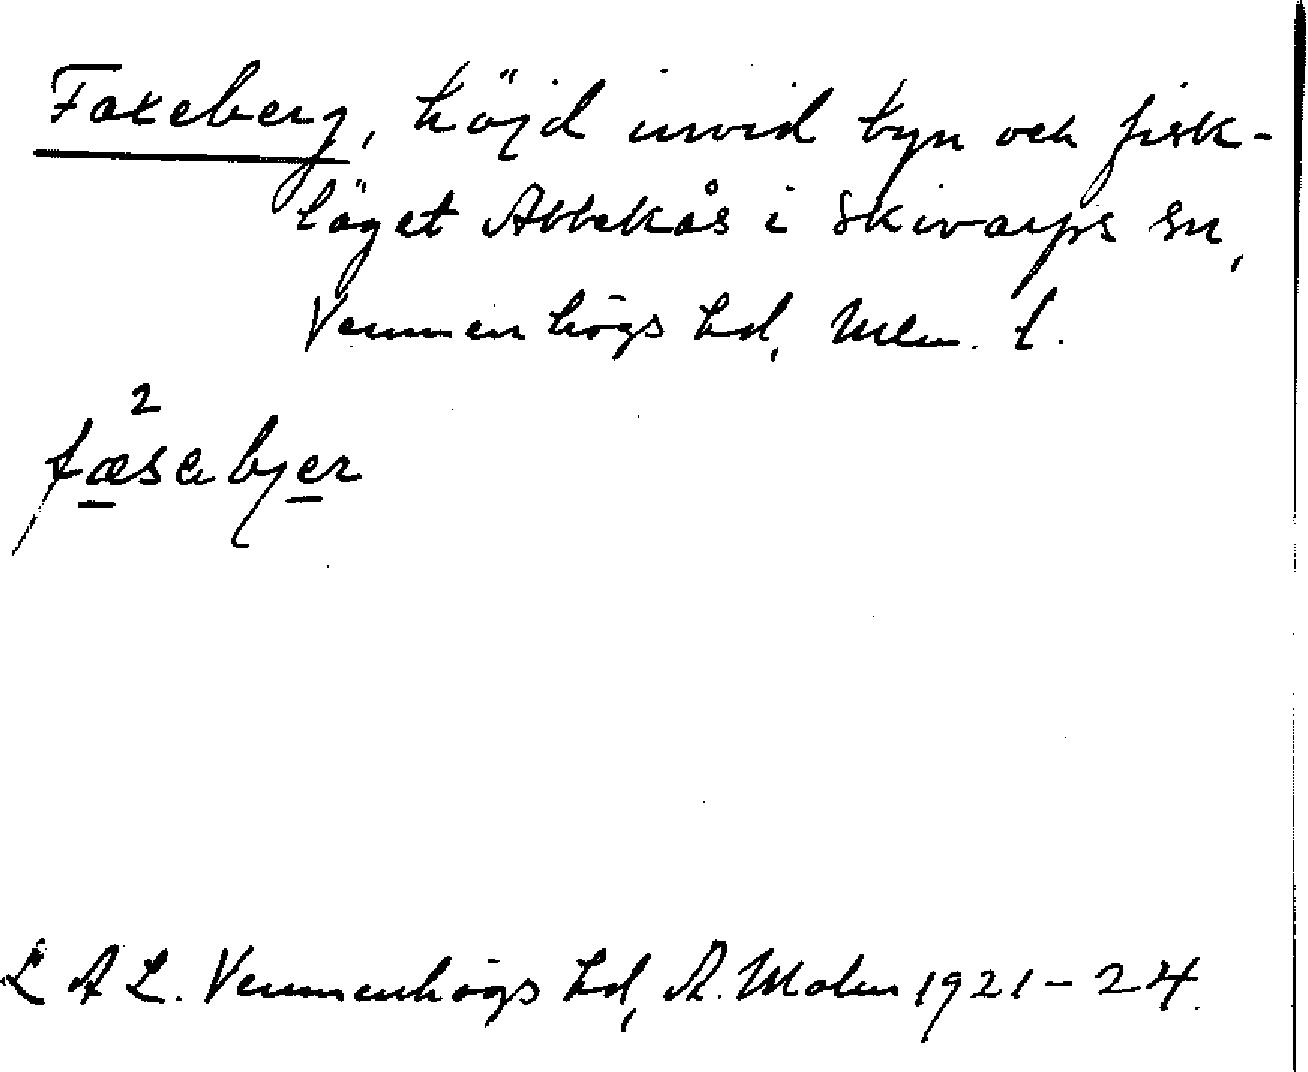 Faxeberg, höjd invid byn och fisk-
läget Abbekås i Skivarps sn,
Vemmenhögs hd, Mlm. l.
2
fæsabjer
L A L. Vemmenhögs hd, A. Malm 1921-24.